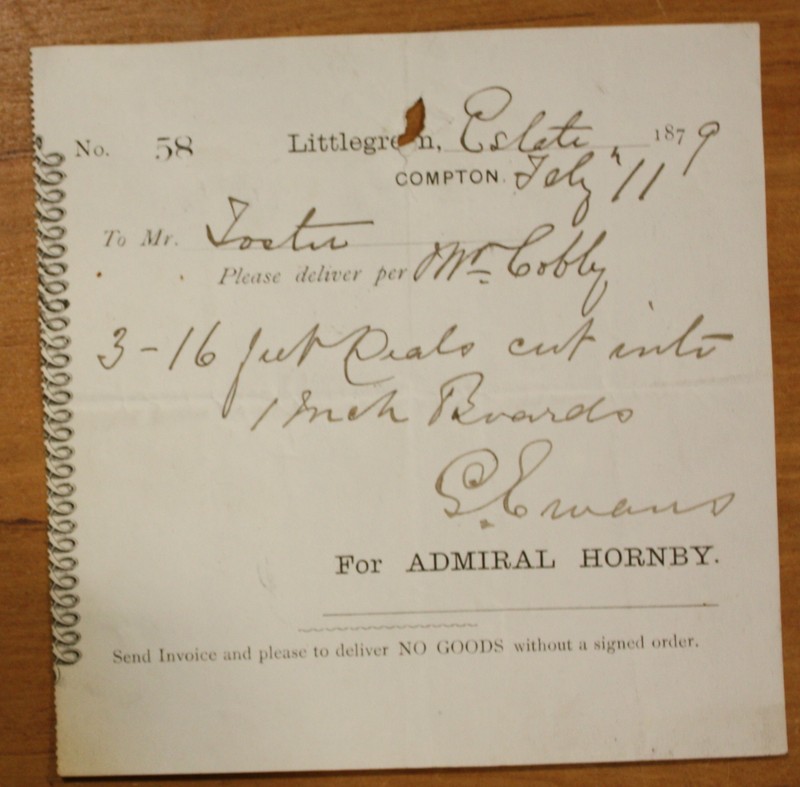 No. 58 Littlegreen, Estate, 1879
COMPTON. Feby 11
To Mr. Foster
Please deliver per Mr. Cobby
3-16 feet Deals cut into
1 Inch Boards
G. Ewans
For ADMIRAL HORNBY.
Send Invoice and please to deliver NO GOODS without a signed order.